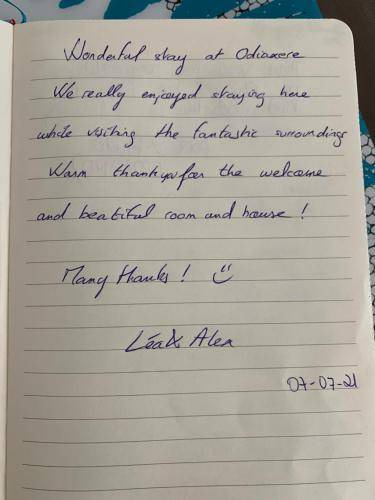 Wonderful stay at Odiaxere
We really enjoyed staying here
while visiting the fantastic surroundings
Warm thank you for the welcome
and beatiful room and house !
Many thanks ! ツ
Léa & Alex
07-07-21